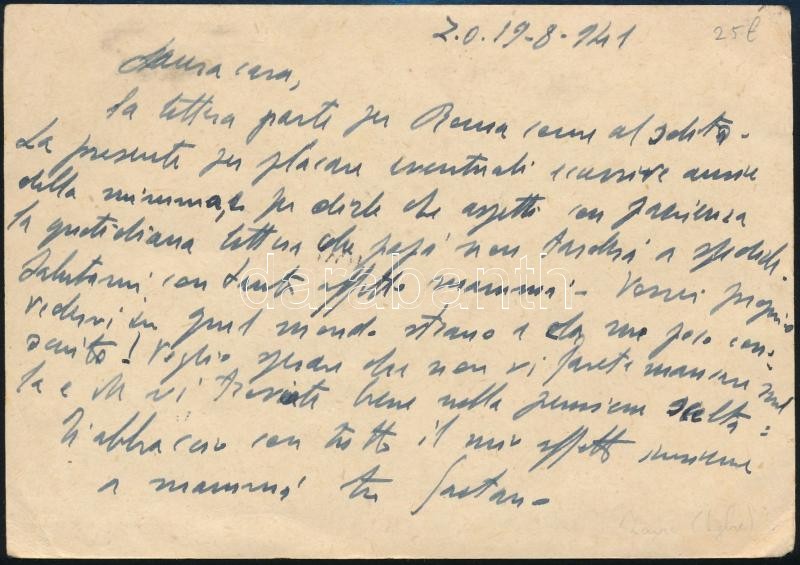 Z.O. 19-8-941
25£
Laura cara,
la lettera parte per Roma come al solito.
La presente per placare eventuali eccessive ansie
della mimma, e per dirle che aspetti con pazienza
la quotidiana lettera che papà non tarderà a spedirle.
Salutami con tanto affetto mammà. Vorrei proprio
vedervi in quel mondo strano e da me poco cono=
sciuto! Voglio sperare che non vi farete mancare nul
la e che vi troviate bene nella pensione scelta.
Ti abbraccio con tutto il mio affetto insieme
a mammà tuo Gaetano
darabanth